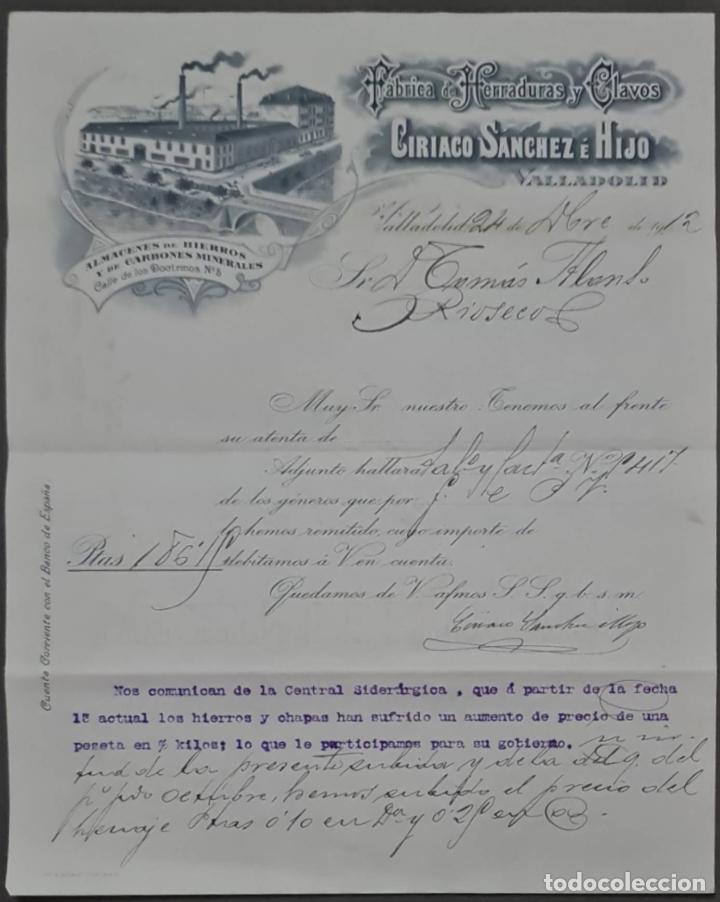 Fábrica de Herraduras y Clavos
CIRIACO SÁNCHEZ É HIJO
VALLADOLID
ALMACENES DE HIERROS
Y DE CARBONES MINERALES
Calle de los Doctrinos Nº 5
Valladolid 24 de Dbre de 1912
Sr. D. Tomás Alonso
Rioseco
Muy Sr. nuestro: Tenemos al frente
su atenta de
Adjunto hallará talº y fact.ª Nº 417
de los géneros que por
le hemos remitido, cuyo importe de
Ptas 186'15 debitamos á V en cuenta.
Quedamos de V. afmos S. S. q. b. s. m.
Ciriaco Sanchez é Hijo
Cuenta Corriente con el Banco de España.
Nos comunican de la Central Siderúrgica, que á partir de la fecha
15 actual los hierros y chapas han sufrido un aumento de precio de una
peseta en % kilos; lo que le participamos para su gobierno.
tud de la presente subida y de la del 9. del
pº pdo Octubre, hemos subido el precio del
herraje Ptas 0'10 en Dª y 0'25 en
todocoleccion.net